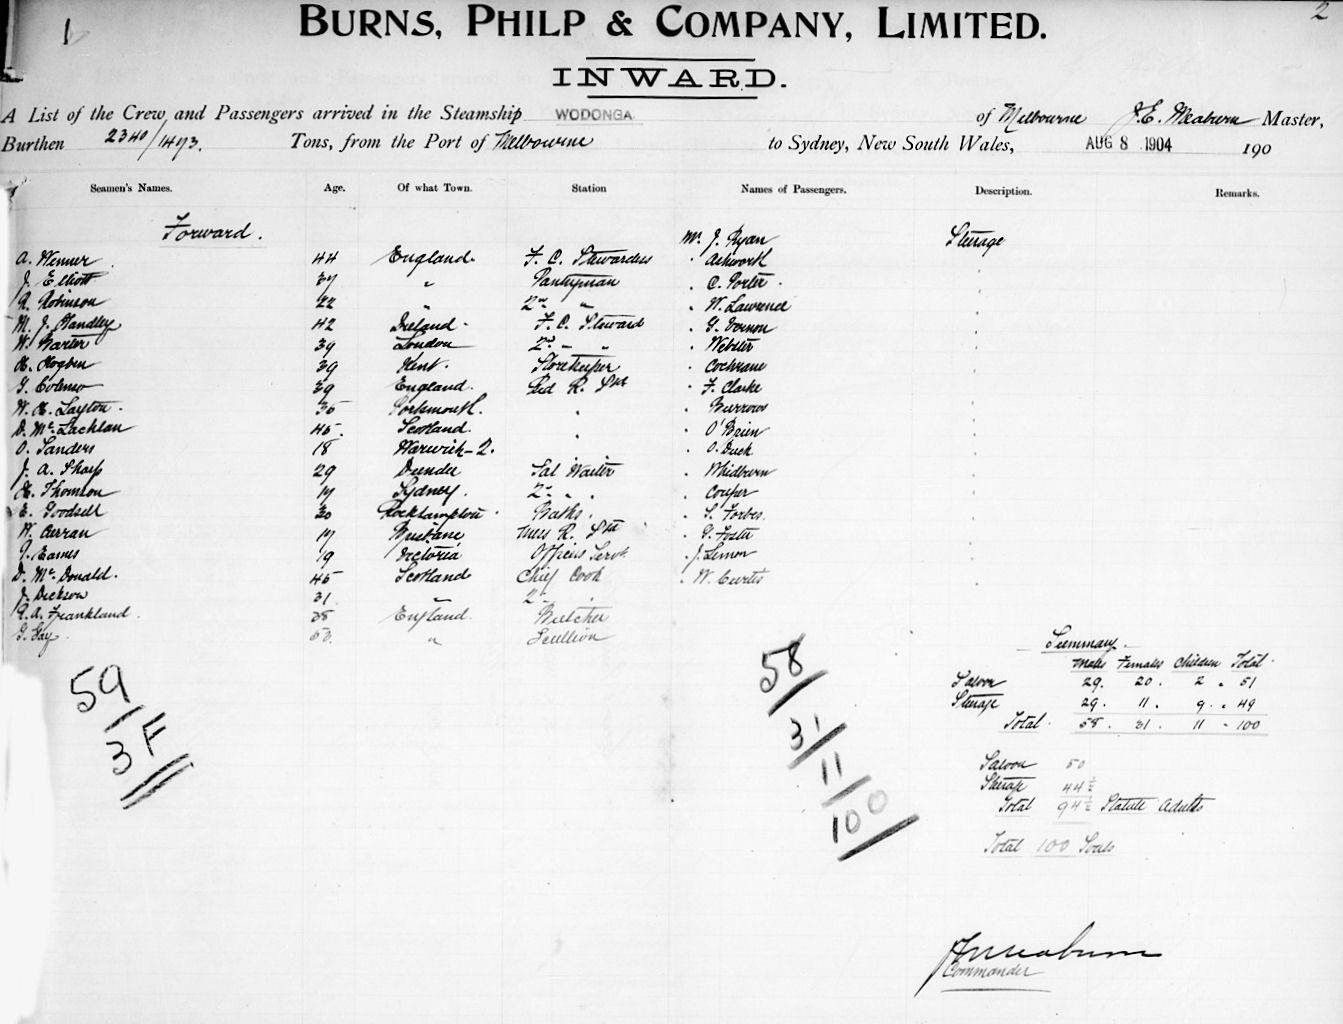 1
2
BURNS, PHILP & COMPANY, LIMITED.
INWARD.
A List of the Crew and Passengers arrived in the Steamship WODONGA of Melbourne J.E. Meaburn Master,
Burthen 2340/1473. Tons, from the Port of Melbourne to Sydney, New South Wales, AUG 8 1904 190
Seamen's Names. Age. Of what Town. Station Names of Passengers. Description. Remarks.
Forward.
Mr. J. Ryan Steerage
A. Wenner 44 England. F. C. Stewardess " Ashworth "
J. Elliott 37 " Pantryman " C. Porter "
R. Robinson 22 " 2nd " " W. Lawrence "
M. J. Handley 42 Ireland. F. C. Steward " G. Vernon "
W. Barter 39 London 2nd " " " Webster "
H. Hogben 39 Kent. Storekeeper " Cochrane "
G. 39 England. Bed R. Std " F. Clarke "
W. H. Layton. 36 Portsmouth. " " Burrows "
D. McLachlan 45. Scotland. " " O'Brien "
O. Sanders 18 Warwick-Q. " " O. Duck "
J. A. Sharp 29 Dundee Sal Waiter " Whidburn "
H. Thomson 17 Sydney. 2nd " " " Couper "
E. Goodsell 20 Rockhampton Baths. " S. Forbes. "
W. Curran 17 Brisbane Mess R. Std " G. Foster "
J. Eames 19 Victoria Officers Servt " J. Lemon "
D. McDonald. 45 Scotland Chief Cook " W. Curtis "
J. Dickson 31 " 2nd "
R. A. Frankland 38 England. Butcher
G. Gay 53. " Scullion
59
3 F
58
31
11
100
Summary.
Males Females Children Total
Saloon 29. 20. 2 - 51
Steerage 29. 11. 9 - 49
Total. 58. 31. 11 - 100
Saloon 50
Steerage 44½
Total 94½ Statute Adults
Total 100 Souls
JE Meaburn
Commander